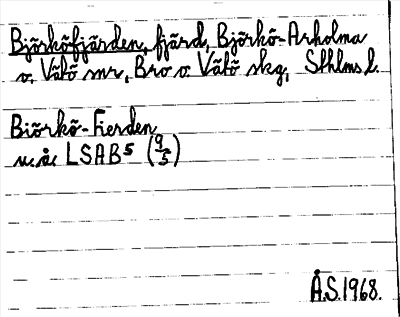 Björköfjärden, fjärd, Björkö-Arholma
o. Vätö snr, Bro o. Vätö skg, Sthlms l.
Biörkö-Fierden
u.å. LSAB5 (9/5)
Å.S.1968.